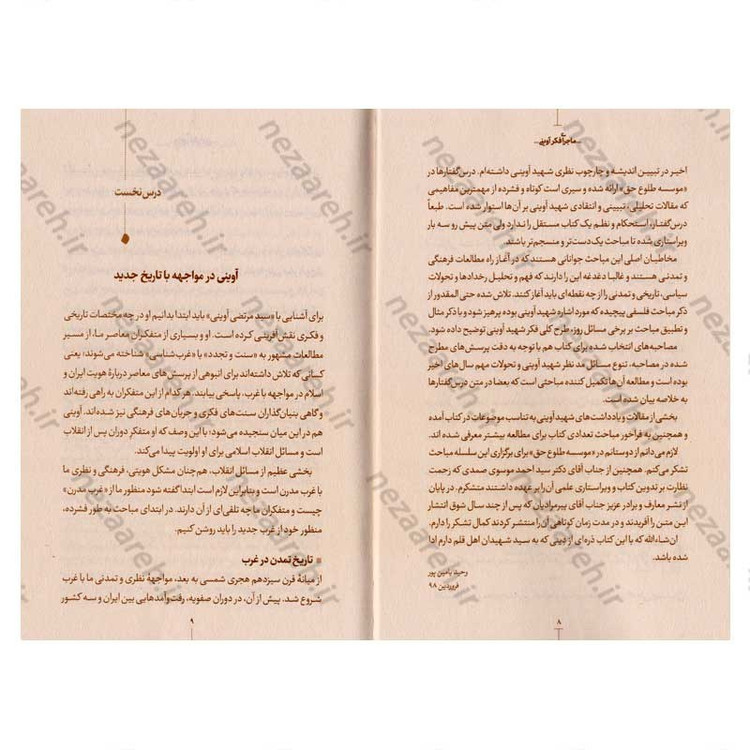 ماجرای فکر آوینی
اخیر در تبیین اندیشه و چارچوب نظری شهید آوینی داشته‌ام. درس‌گفتارها در
«موسسه طلوع حق» ارائه شده و سیری است کوتاه و فشرده از مهمترین مفاهیمی
که مقالات تحلیلی، تبیینی و انتقادی شهید آوینی بر آن‌ها استوار شده است. طبعاً
درس‌گفتار، استحکام و نظم یک کتاب مستقل را ندارد ولی متن پیش رو سه بار
ویراستاری شده تا مباحث یک‌دست‌تر و منسجم‌تر باشند.
مخاطبان اصلی این مباحث جوانانی هستند که در آغاز راه مطالعات فرهنگی
و تمدنی هستند و غالبا دغدغه این را دارند که فهم و تحلیل رخدادها و تحولات
سیاسی، تاریخی و تمدنی را از چه نقطه‌ای باید آغاز کنند. تلاش شده حتی المقدور از
ذکر مباحث فلسفی پیچیده که مورد اشاره شهید آوینی بوده پرهیز شود و با ذکر مثال
و تطبیق مباحث بر برخی مسائل روز، طرح کلی فکر شهید آوینی توضیح داده شود.
مصاحبه‌های انتخاب شده برای کتاب هم با توجه به دقت پرسش‌های مطرح
شده در مصاحبه، تنوع مسائل مد نظر شهید آوینی و تحولات مهم سال‌های اخیر
بوده است و مطالعه آن‌ها تکمیل کننده مباحثی است که بعضا در متن درس‌گفتارها
به خلاصه بیان شده است.
بخشی از مقالات و یادداشت‌های شهید آوینی به تناسب موضوعات در کتاب آمده
و همچنین به فراخور مباحث تعدادی کتاب برای مطالعه بیشتر معرفی شده اند.
لازم می‌دانم از دوستانم در «موسسه طلوع حق» برای برگزاری این سلسله مباحث
تشکر می‌کنم. همچنین از جناب آقای دکتر سید احمد موسوی صمدی که زحمت
نظارت بر تدوین کتاب و ویراستاری علمی آن را بر عهده داشتند متشکرم. در پایان
از نشر معارف و برادر عزیز جناب آقای پیرمرادیان که پس از چند سال شوق انتشار
این متن را آفریدند و در مدت زمان کوتاهی آن را منتشر کردند کمال تشکر را دارم.
ان‌شاءالله که با این کتاب ذره‌ای از دینی که به سید شهیدان اهل قلم دارم ادا
شده باشد.
وحید یامین پور
فروردین ۹۸
۸
درس نخست
آوینی در مواجهه با تاریخ جدید
برای آشنایی با «سید مرتضی آوینی» باید ابتدا بدانیم او در چه مختصات تاریخی
و فکری نقش آفرینی کرده است. او و بسیاری از متفکران معاصر ما، از مسیر
مطالعات مشهور به «سنت و تجدد» یا «غرب‌شناسی» شناخته می‌شوند؛ یعنی
کسانی که تلاش داشته‌اند برای انبوهی از پرسش‌های معاصر دربارهٔ هویت ایران و
اسلام در مواجهه با غرب، پاسخی بیابند. هر کدام از این متفکران به راهی رفته‌اند
و گاهی بنیان‌گذاران سنت‌های فکری و جریان‌های فرهنگی نیز شده‌اند. آوینی
هم در این میان سنجیده می‌شود؛ با این وصف که او متفکر دوران پس از انقلاب
است و مسائل انقلاب اسلامی برای او اولویت پیدا می‌کند.
بخشی عظیم از مسائل انقلاب، هم‌چنان مشکل هویتی، فرهنگی و نظری ما
با غرب مدرن است و بنابراین لازم است ابتدا گفته شود منظور ما از «غرب مدرن»
چیست و متفکران ما چه تلقی‌ای از آن دارند. در ابتدای مباحث به طور فشرده،
منظور خود از غرب جدید را باید روشن کنیم.
تاریخ تمدن در غرب
از میانهٔ قرن سیزدهم هجری شمسی به بعد، مواجههٔ نظری و تمدنی ما با غرب
شروع شد. پیش از آن، در دوران صفویه، رفت‌وآمدهایی بین ایران و سه کشور
۹
nezaareh.ir